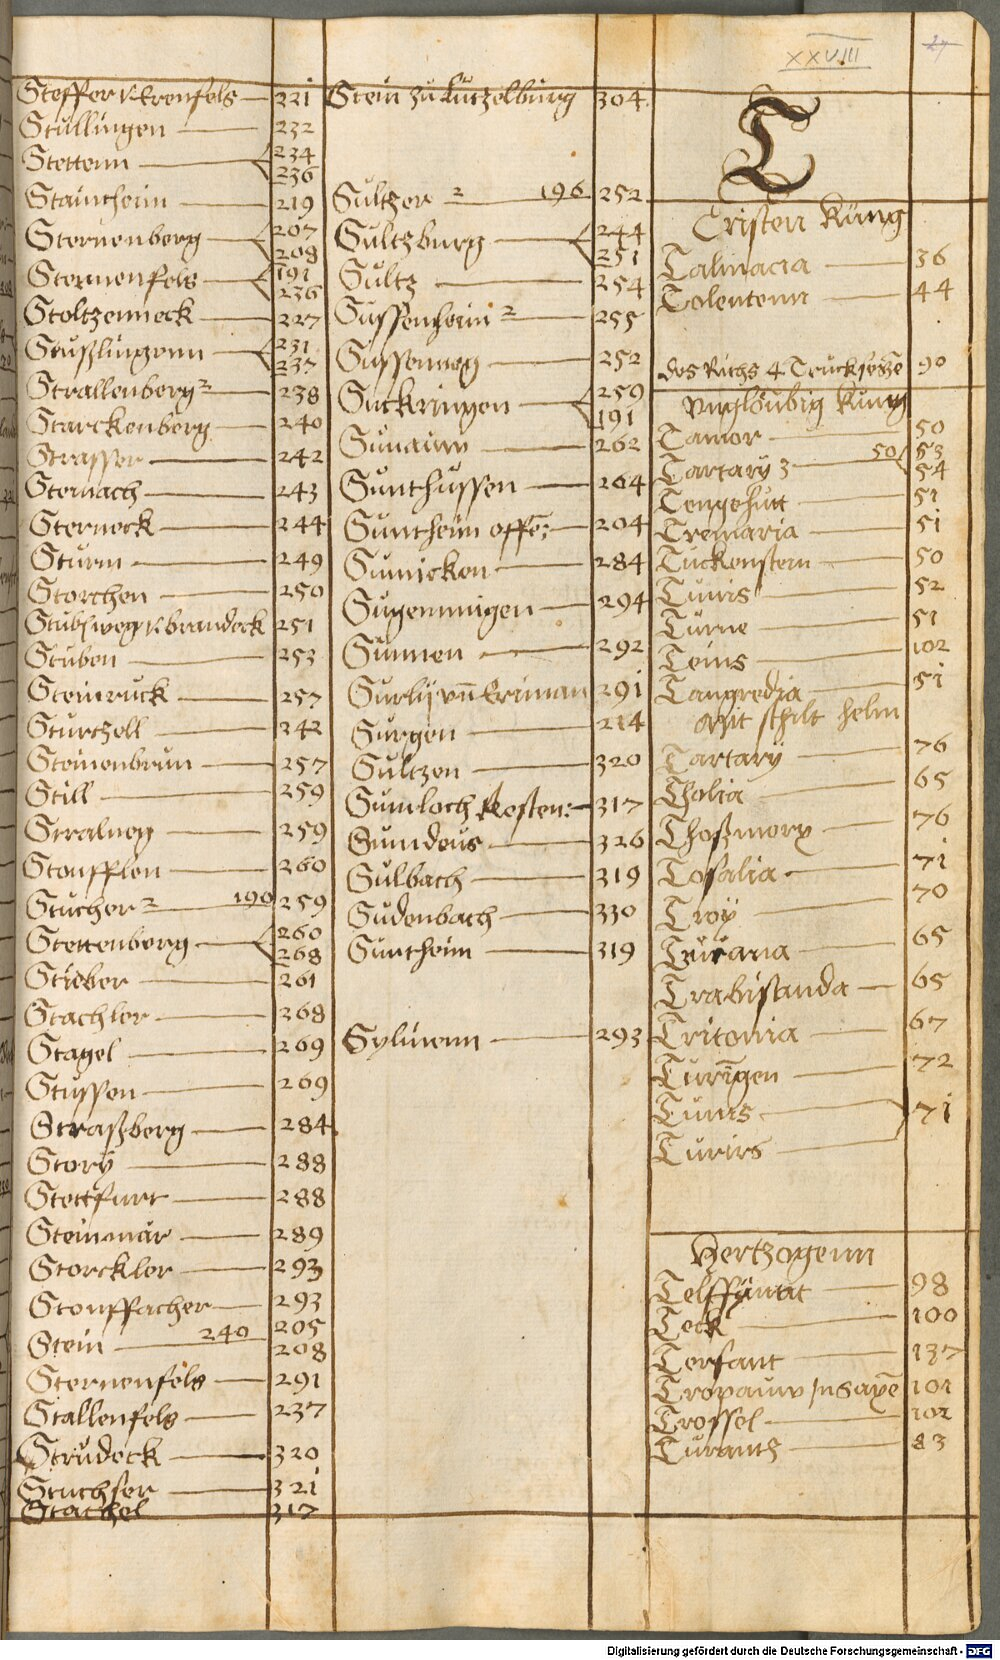 XXVIII
27
Steffer v. Erenfels 221
Stullingen 232
Stettenn 234
236
Stainheim 219
Sternenberg 207
208
Sternenfels 191
236
Stoltzenneck 227
Steußlingenn 231
237
Strallenberg 2 238
Starckenberg 240
Strasser 242
Sternach 243
Sterneck 244
Sturm 249
Storchen 250
Stubßweg v. Brandeck 251
Stuben 253
Steinruck 257
Sturtzell 342
Steinenbrun 257
Still 259
Stralneg 259
Stoufflen 260
Stucher 2 190 259
Stettenberg 260
268
Stieber 261
Stachler 268
Stagel 269
Stussen 269
Straßberg 284
Story 288
Stettfurt 288
Steinmar 289
Storckler 293
Stouffacher 293
Stein 240 205
208
Sternenfels 291
Stallenfels 237
Strudeck 320
Stuchser 321
Stachel 317
Stein zu Lutzelburg 304
Sultzer 2 196 252
Sultzburg 244
251
Sultz 254
Sussenheim 2 255
Sussenweg 252
Suckringen 259
191
Sunauw 262
Sunthussen 264
Suntheim offē: 204
Sunicken 284
Sugenningen 294
Sunnen 292
Surlÿ vñ Eriman 291
Surgen 214
Sultzen 320
Sumloch Kosten: 317
Sumdeus 326
Sulbach 319
Sudenbach 330
Suntheim 319
Sylinenn 293
T
Cristen Küng
Talmacia 36
Tolentenn 44
des Richs 4 Truckseße 90
Vnglöubig Kung
Tamor 50
Tartary 3 50 53
54
Tengehutt 51
Tremaria 51
Tuckenstern 50
Tunis 52
Turne 51
Tenis 102
Tangredia 51
Mit schilt helm
Tartarÿ 76
Tholia 65
Thoßmorx 76
Tosalia 71
Troÿ 70
Turaria 65
Trabisanda 65
Tritonia 67
Turīgen 72
Tunis 71
Turirs
Hertzogenn
Telffÿntat 98
Teck 100
Tersant 137
Tropauw in Saxē 101
Trossel 102
Turantz 83
Digitalisierung gefördert durch die Deutsche Forschungsgemeinschaft - DFG